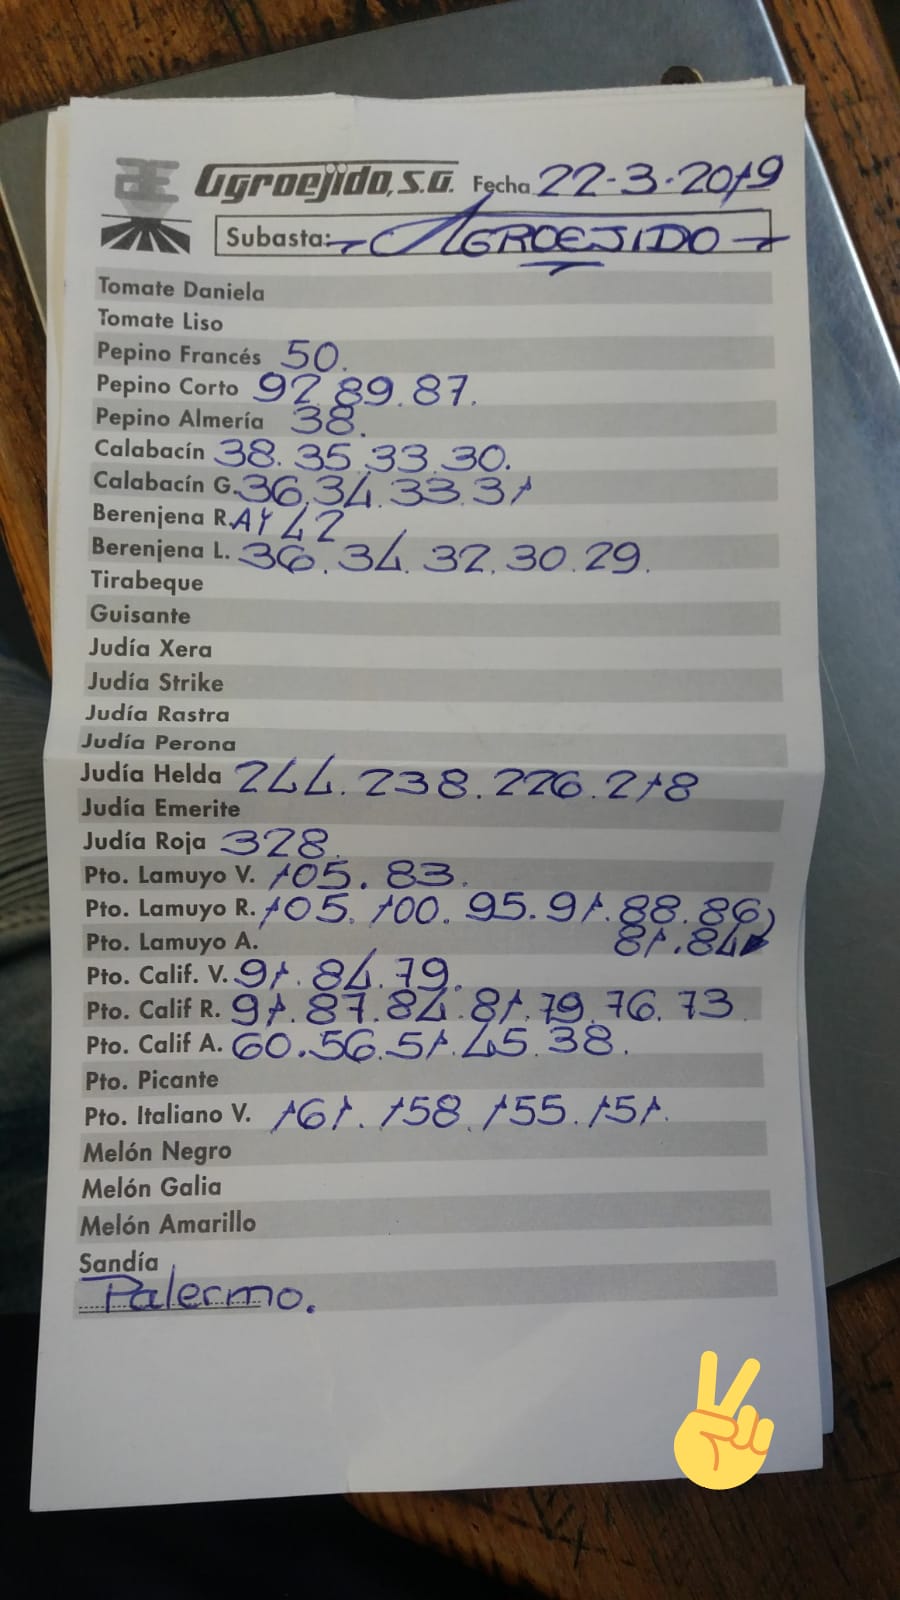 Agroejido, S.A. Fecha 22-3-2019
Subasta: AGROEJIDO
Tomate Daniela
Tomate Liso
Pepino Francés 50.
Pepino Corto 92.89.87.
Pepino Almería 38.
Calabacín 38.35.33.30.
Calabacín G. 36.34.33.31
Berenjena R. AY 42
Berenjena L. 36.34.32.30.29.
Tirabeque
Guisante
Judía Xera
Judía Strike
Judía Rastra
Judía Perona
Judía Helda 244.238.226.218
Judía Emerite
Judía Roja 328.
Pto. Lamuyo V. 105.83.
Pto. Lamuyo R. 105.100.95.91.88.86
Pto. Lamuyo A. 81.84
Pto. Calif. V. 91.84.79.
Pto. Calif R. 91.87.84.81.79.76.73
Pto. Calif A. 60.56.51.45.38.
Pto. Picante
Pto. Italiano V. 161.158.155.151.
Melón Negro
Melón Galia
Melón Amarillo
Sandía
Palermo.